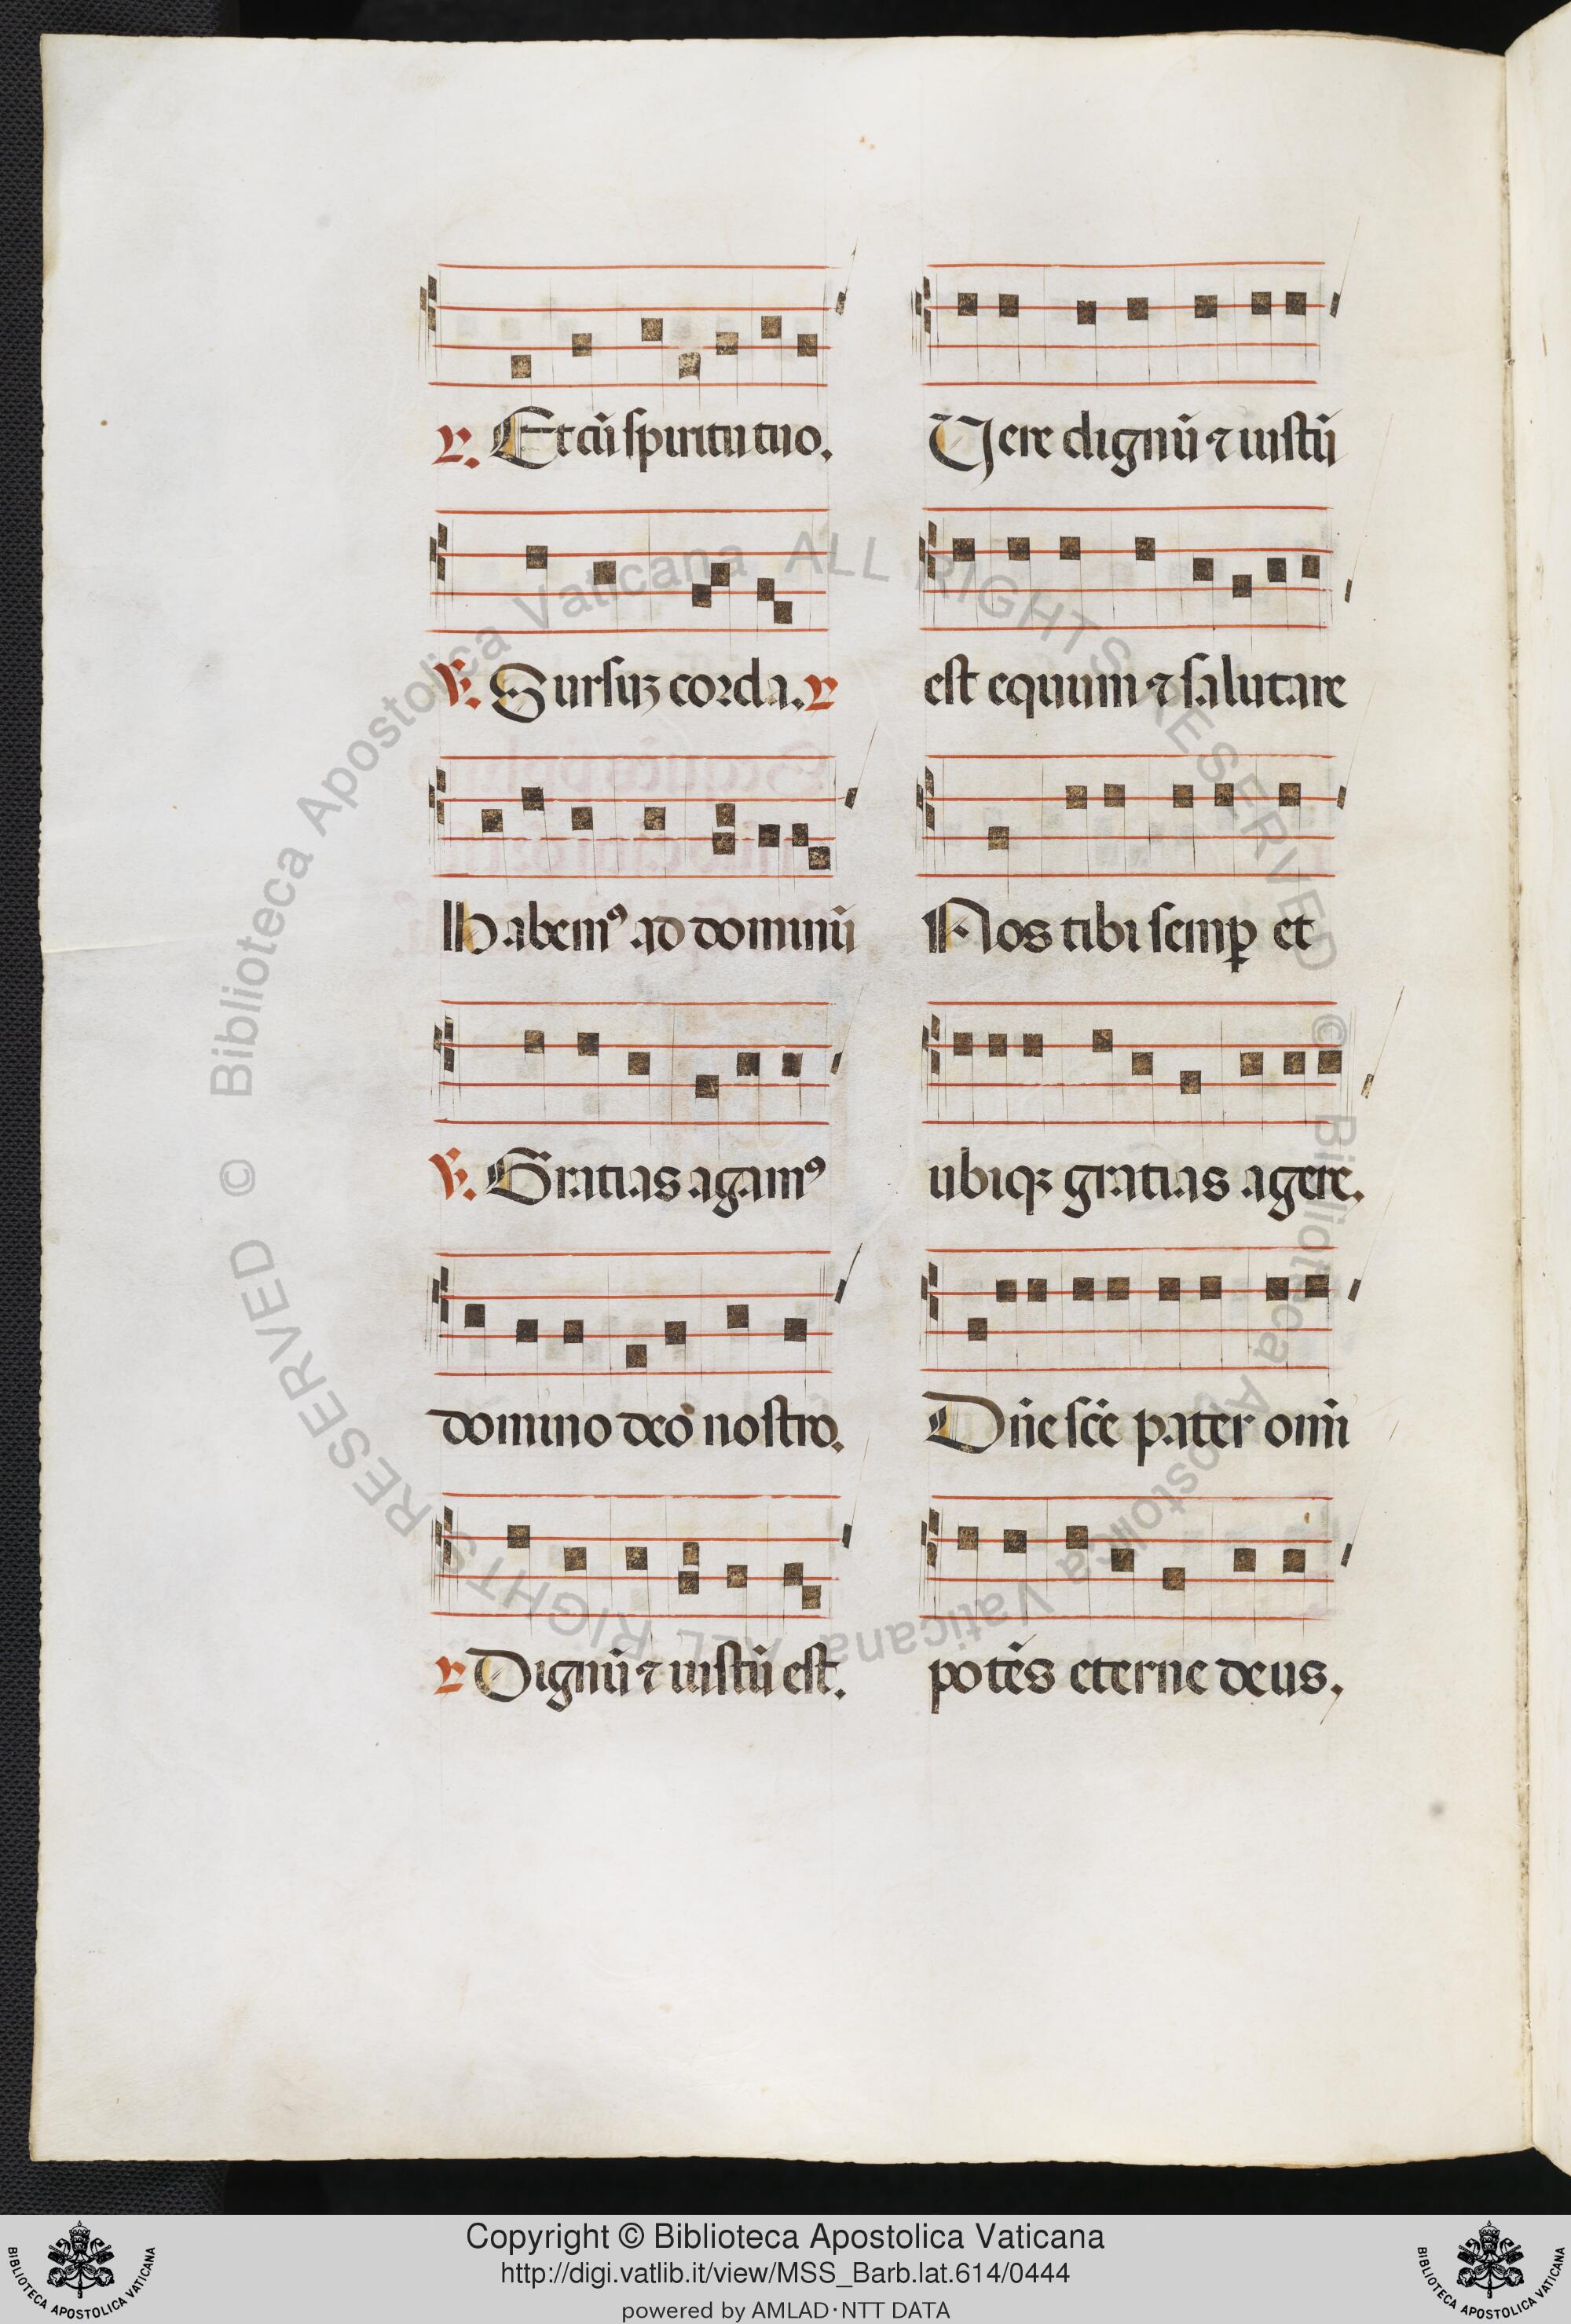 ℟. Et cū ſpiritu tuo.
℣. Surſuꝫ corda. ℟
Habemꝰ ad dominū
℣. Gratias agamꝰ
domino deo noſtro.
℟ Dignū ⁊ iuſtū eſt.
Vere dignū ⁊ iuſtū
eſt equum ⁊ ſalutare
Nos tibi ſemꝑ et
ubiqꝫ gratias agere.
Dn̄e ſc̄e pater om̄i
potēs eterne deus.
© Biblioteca Apostolica Vaticana ALL RIGHTS RESERVED © Biblioteca Apostolica Vaticana ALL RIGHTS RESERVED
Copyright © Biblioteca Apostolica Vaticana
http://digi.vatlib.it/view/MSS_Barb.lat.614/0444
powered by AMLAD·NTT DATA
BIBLIOTECA APOSTOLICA VATICANA
BIBLIOTECA APOSTOLICA VATICANA